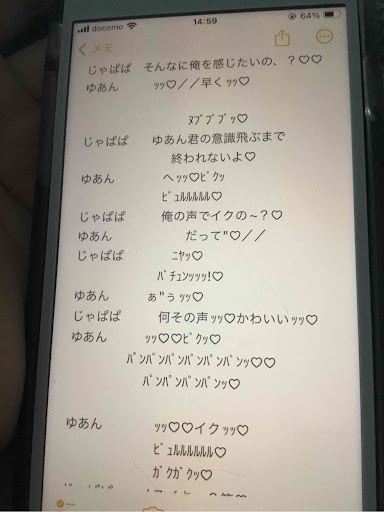 docomo 14:59 64%
メモ
じゃぱぱ そんなに俺を感じたいの、？♡♡
ゆあん ｯｯ♡／／早くｯｯ♡
ﾇﾌﾟﾌﾟﾌﾟｯ♡
じゃぱぱ ゆあん君の意識飛ぶまで
終われないよ♡
ゆあん へｯｯ♡ﾋﾞｸｯ
ﾋﾞｭﾙﾙﾙﾙﾙ♡
じゃぱぱ 俺の声でイクの~？♡
ゆあん だって"♡／／
じゃぱぱ ﾆﾔｯ♡
ﾊﾞﾁｭﾝｯｯｯ!♡
ゆあん ぁ"ぅｯｯ♡
じゃぱぱ 何その声ｯｯ♡かわいいｯｯ♡
ゆあん ｯｯ♡♡ﾋﾞｸｯ♡
ﾊﾟﾝﾊﾟﾝﾊﾟﾝﾊﾟﾝﾊﾟﾝﾊﾟﾝｯ♡♡
ﾊﾟﾝﾊﾟﾝﾊﾟﾝﾊﾟﾝｯ♡
ゆあん ｯｯ♡♡イクｯｯ♡
ﾋﾞｭﾙﾙﾙﾙﾙﾙ♡
ｶﾞｸｶﾞｸｯ♡